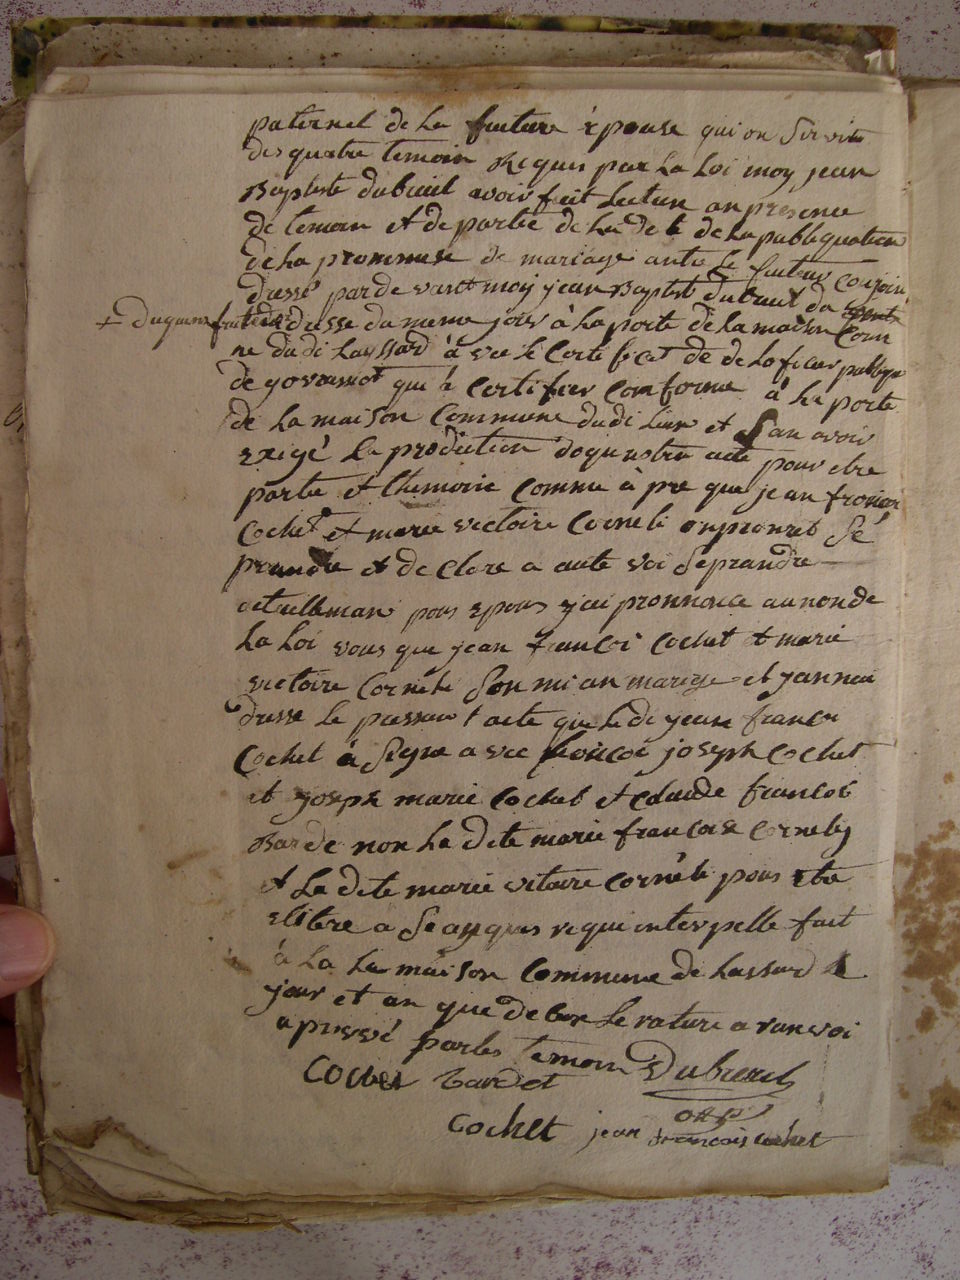 paternel de la future épouse qui on servit
des quatre temoin Requis par la Loi moy jean
Baptiste dubeuil avoir fait Lecture an presence
de temoin et de partie de La de t de la publiquation
de la prommese de mariage antre Le futeur conjoin
dressé par de vant moy jean Baptist dubeuil du
+ du quinze fruitidor dusse du meme jour à La porte de la maison Com
ne du di Layssard à vec le Certificat de de Loficier publique
de que le Certifier Comforme à La porte
de la maison Commune du di Lieu et San avoir
exigé La prodution doqu notre acte pour etre
partie et themoin comme à pre que jean fransoi
Cochet et marie victoire Cornebi onpromet Sé
prandre et de Clore a aute voi Seprandre
actuelleman pour epoux j'ai prononce au non de
La Loi vous que jean francoi Cochet et marie
victoire Cornebi Son mi an mariage et j an nai
dresse le pressant acte que le di jean francoi
Cochet à Signe a vec francoi joseph Cochet
et joseph marie Cochet et Claude francoi
Barde non La dite marie francoise Cornebi
et La dite marie vitoire Cornebi pour etre
elitre a Se an quis requi interpelle fait
à La La maison Commune de Lassard Le
jour et an que de Sur Le rature a ranvoi
aprevé par les temoin Dubreuil
Cochet Bardet off p
Cochet jean francois cochet